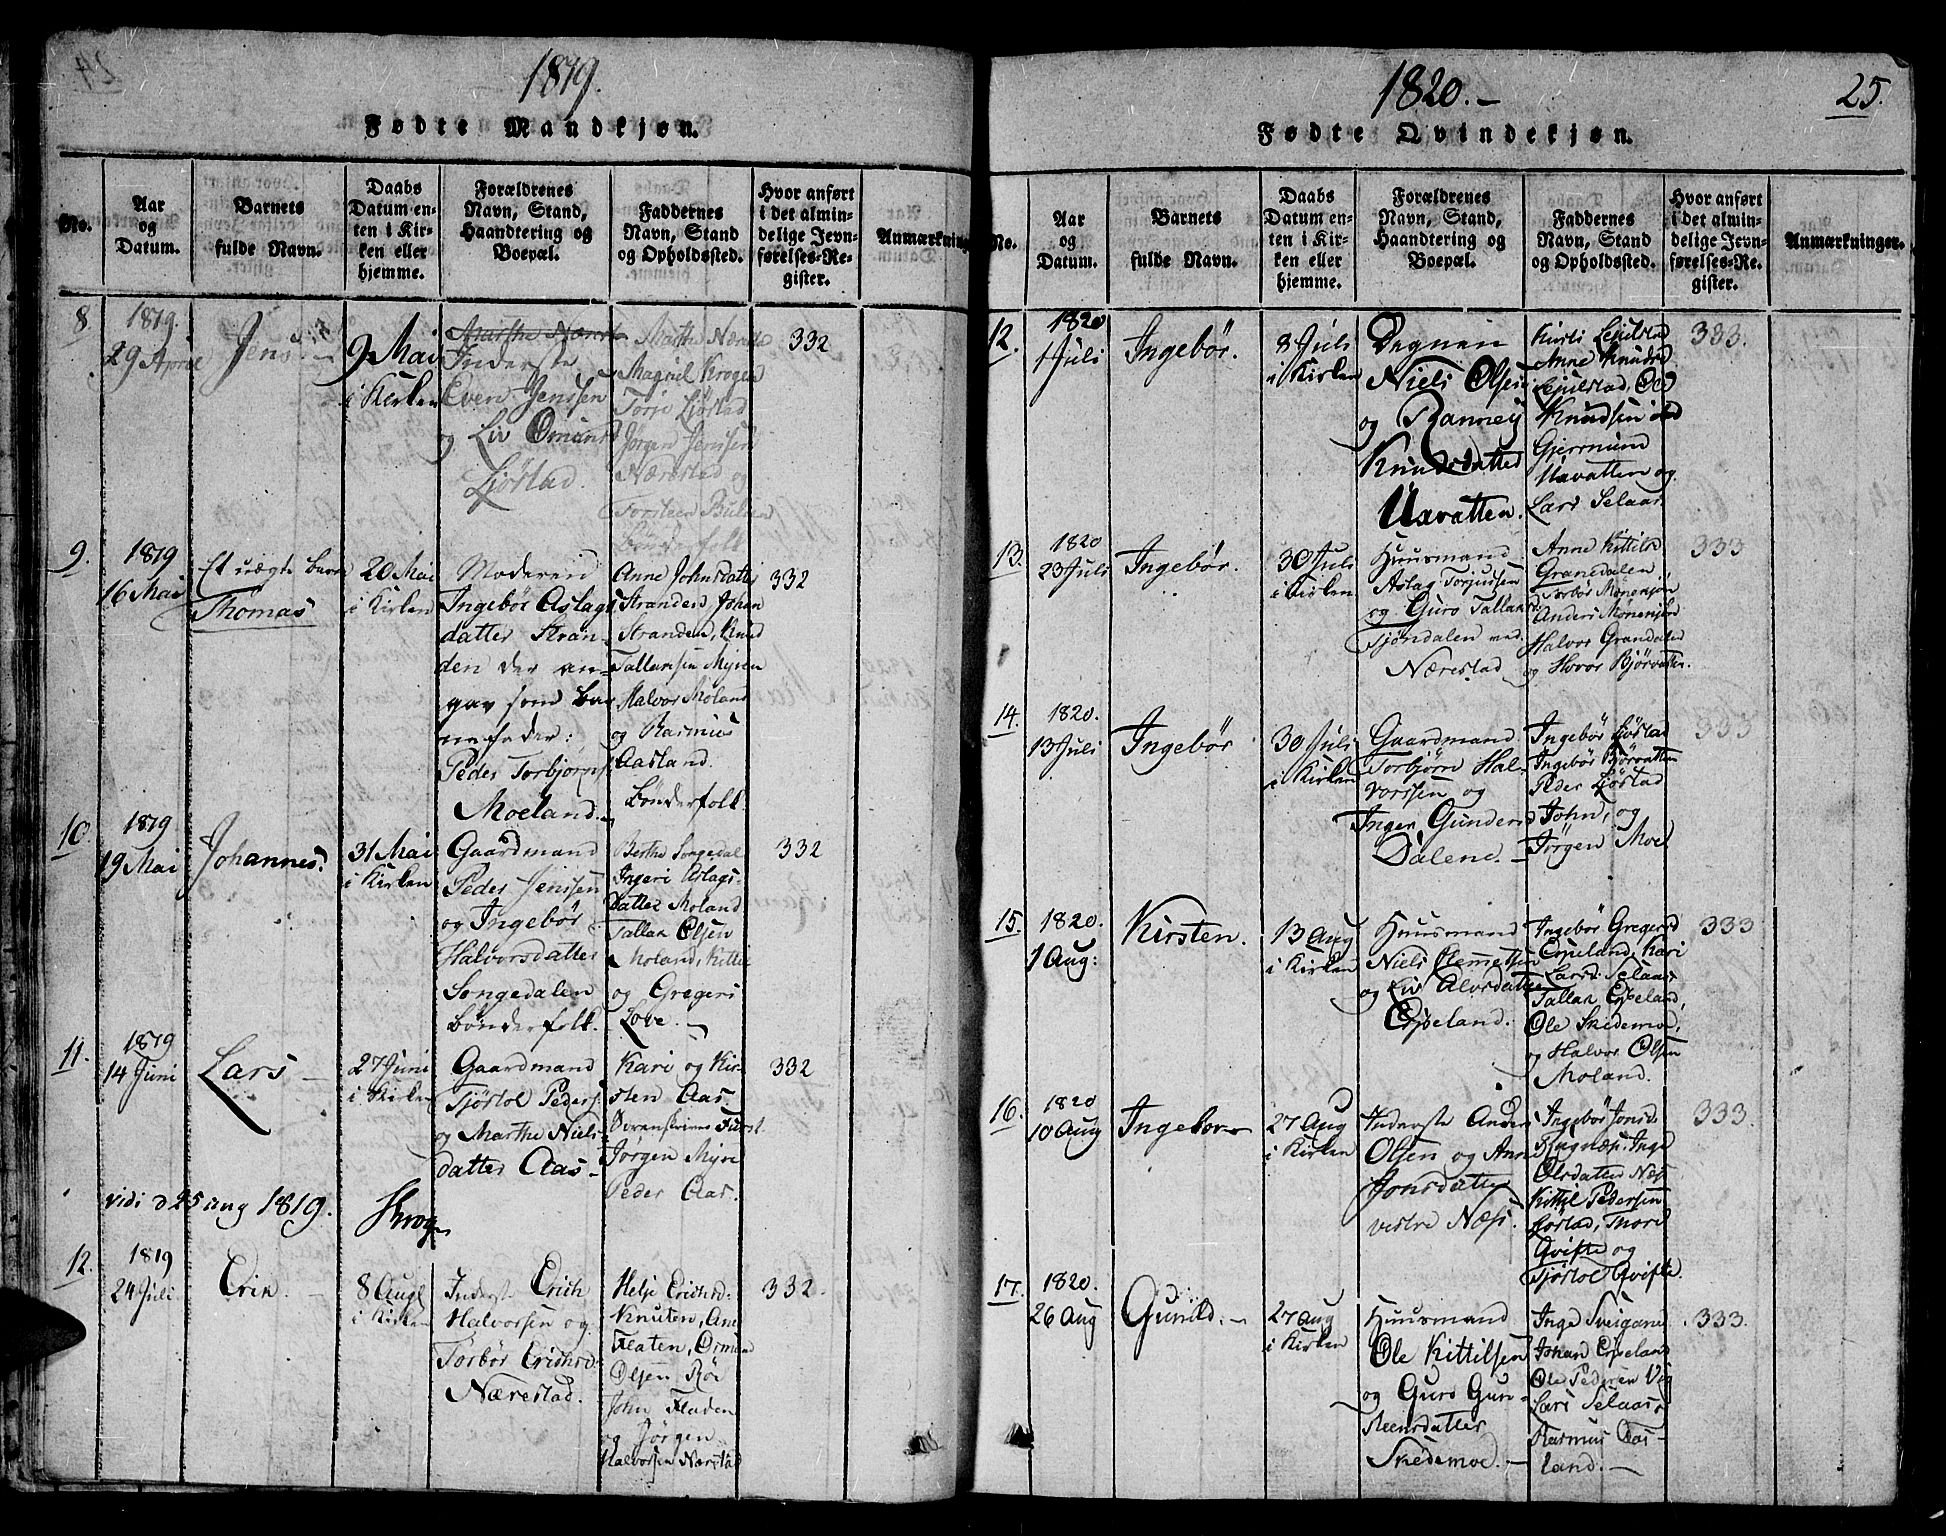 1819.
Fødte Mandkjøn.
No.
Aar
og
Datum.
Barnets
fulde Navn.
Daabs
Datum en-
ten i Kir-
ken eller
hjemme.
Forældrenes
Navn, Stand,
Haandtering og
Boepæl.
Faddernes
Navn, Stand
og Opholdssted.
Hvor anført
i det almin-
delige Jevn-
førelses-Re-
gister.
Anmærkning
8
1819.
29 April
Jens
9 Mai
i Kirken
Marthe Næres
Inderste
Even Jenssen
og Liv Omunds
Ljøstad.
Marthe Næres
Magnil Krogen
Torje Ljøstad
Jørgen Jenssen
Nærestad og
Torsteen
Bønderfolk
332
9.
1819
16 Mai
Et uægte barn
Thomas
20 Mai
i Kirken
Moderen
Ingebør Aslags
datter Stran-
den der an-
gav som bar
nefader:
Peder Torbjørns
Moeland.
Anne Johnsdatter
Stranden, Johan
Stranden, Knud
Tallaksen Myren
Halvor Moland
og Rasmus
Aasland.
Bønderfolk
332
10.
1819
19 Mai
Johannes.
31 Mai
i Kirken
Gaardmand
Peder Jenssen
og Ingebør
Halvorsdatter
Songedalen
Bønderfolk.
Berthe Songedal
Ingeri Aslags-
datter Moland
Tallak Olsen
Moland, Kittil
og Gregers
Love.
332
11.
1819
14 Juni
Lars
27 Juni
i Kirken
Gaardmand
Tjøstol Peders.
og Marthe Niels
datter Aas
Kari og Kir-
sten Aas.
Jørgen Myre
Peder Aas.
332
vidi d 25 aug 1819.
Krog
12.
1819
24 Juli
Erik.
8 Augt
i Kirken
Inderst Erich
Halvorsen og
Torbør Erichsd:
Nærestad.
Helje Erichsd:
Knuten, Ane
Flaten, Ormund
Olsen Röe
John Fladen
og Jørgen
Halvorsen Nærstad
332.
1820.
25.
Fødte Qvindekjøn.
No.
Aar
og
Datum.
Barnets
fulde Navn.
Daabs
Datum en-
ten i Kir-
ken eller
hjemme.
Forældrenes
Navn, Stand,
Haandtering og
Boepæl.
Faddernes
Navn, Stand
og Opholdssted.
Hvor anført
i det almin-
delige Jevn-
førelses-Re-
gister.
Anmærkninger.
12.
1820
1 Juli
Ingebør.
8 Juli
i Kirken
Degnen
Niels Olsen
og Ranney
Knudsdatter
Uavatten.
Kirsti
Anne Knudsd
Knudsen
Gjermund
Uavatten og
Lars Selaas
333.
13.
1820
23 Juli
Ingebør.
30 Juli
i Kirken
Huusmand
Aslag Torjussen
og Guro Tallaksd
Tjøndalen ved
Nærestad
Anne Kittilsd
Granedalen
Torbør
Anders
Halvor Grandalen
og Hovor Bjørvatten.
333
14.
1820.
13 Juli
Ingebør
30 Juli
i Kirken
Gaardmand
Torbjørn Hal-
vorssen og
Inger Gundersd
Dalene.
Ingebør Ljøstad
Ingebør Bjørvatten
Peder Ljøstad
John, og
Jörgen Moe
333
15.
1820.
1 Aug:
Kirsten.
13 Aug
i Kirken
Huusmand
Niels Clemetsen
og Liv Alvsdatter
Espeland.
Ingebør Gregersd
Espeland, Kari
Larsd. Selaas
Tallak Espeland,
Ole Skedemoe,
og Halvor Olsen
Moland.
333
16.
1820
10 Aug
Ingebor
27 Aug
i Kirken
Inderste Anders
Olsen og Anne
Jonsdatter
vestre Næs.
Ingebør Jonsd.
Inge
Olsdatter Næs
Kittil Pedersen
Ljøstad, Thore
Qvifte og
Tjøstol Qvifte.
333.
17.
1820.
26 Aug
Gunild.
27 Aug
i Kirken
Huusmand
Ole Kittilsen
og Guro Gun-
steensdatter
Skedemoe.
Inge Sveigane
Johan Espeland
Ole Pedersen Vig
Lars Selaas,
Rasmus Aas-
land.
333.